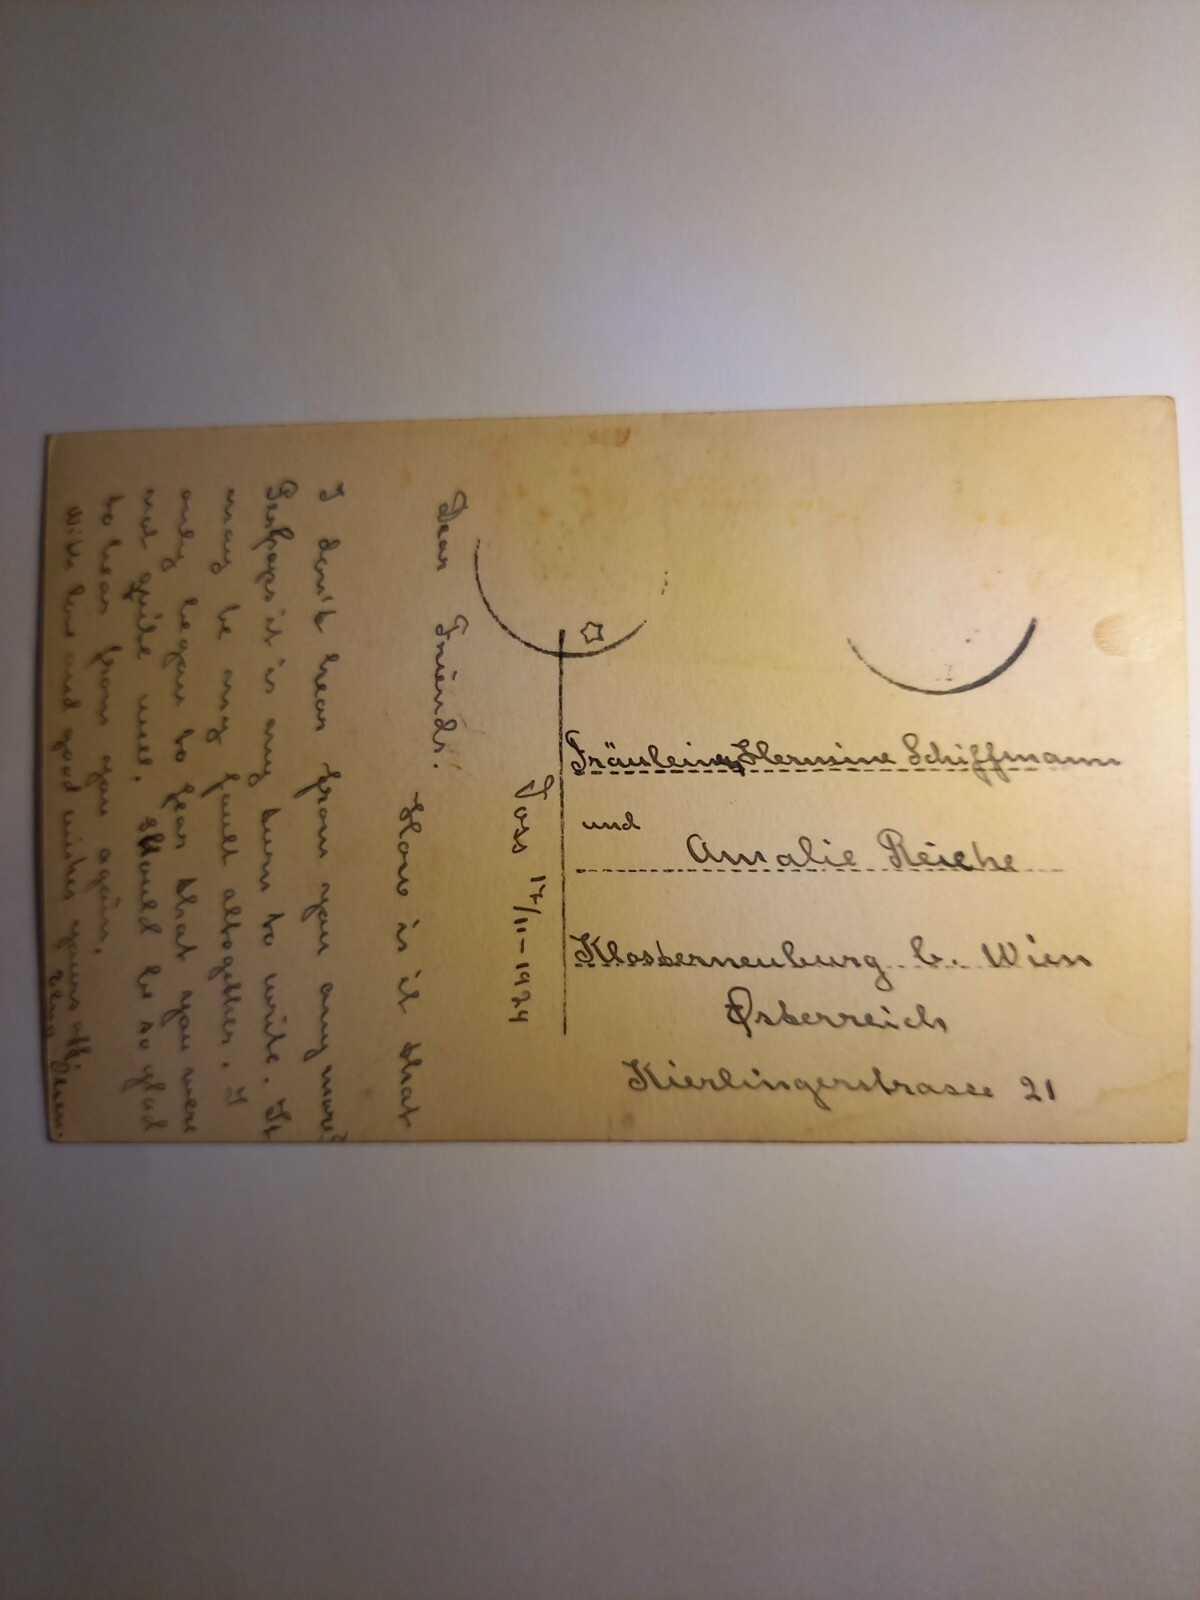 Joss 17/11-1924
Dear Friends!
How is it that
I don't hear from you any more?
Perhaps it is my turn to write. It
may be my fault altogether. I
only began to fear that you were
not quite well. Should be so glad
to hear from you again.
With love and good wishes yours aff.
Fräulein Hermine Schiffmann
und
Amalie Reiche
Klosterneuburg b. Wien
Österreich
Kierlingerstrasse 21